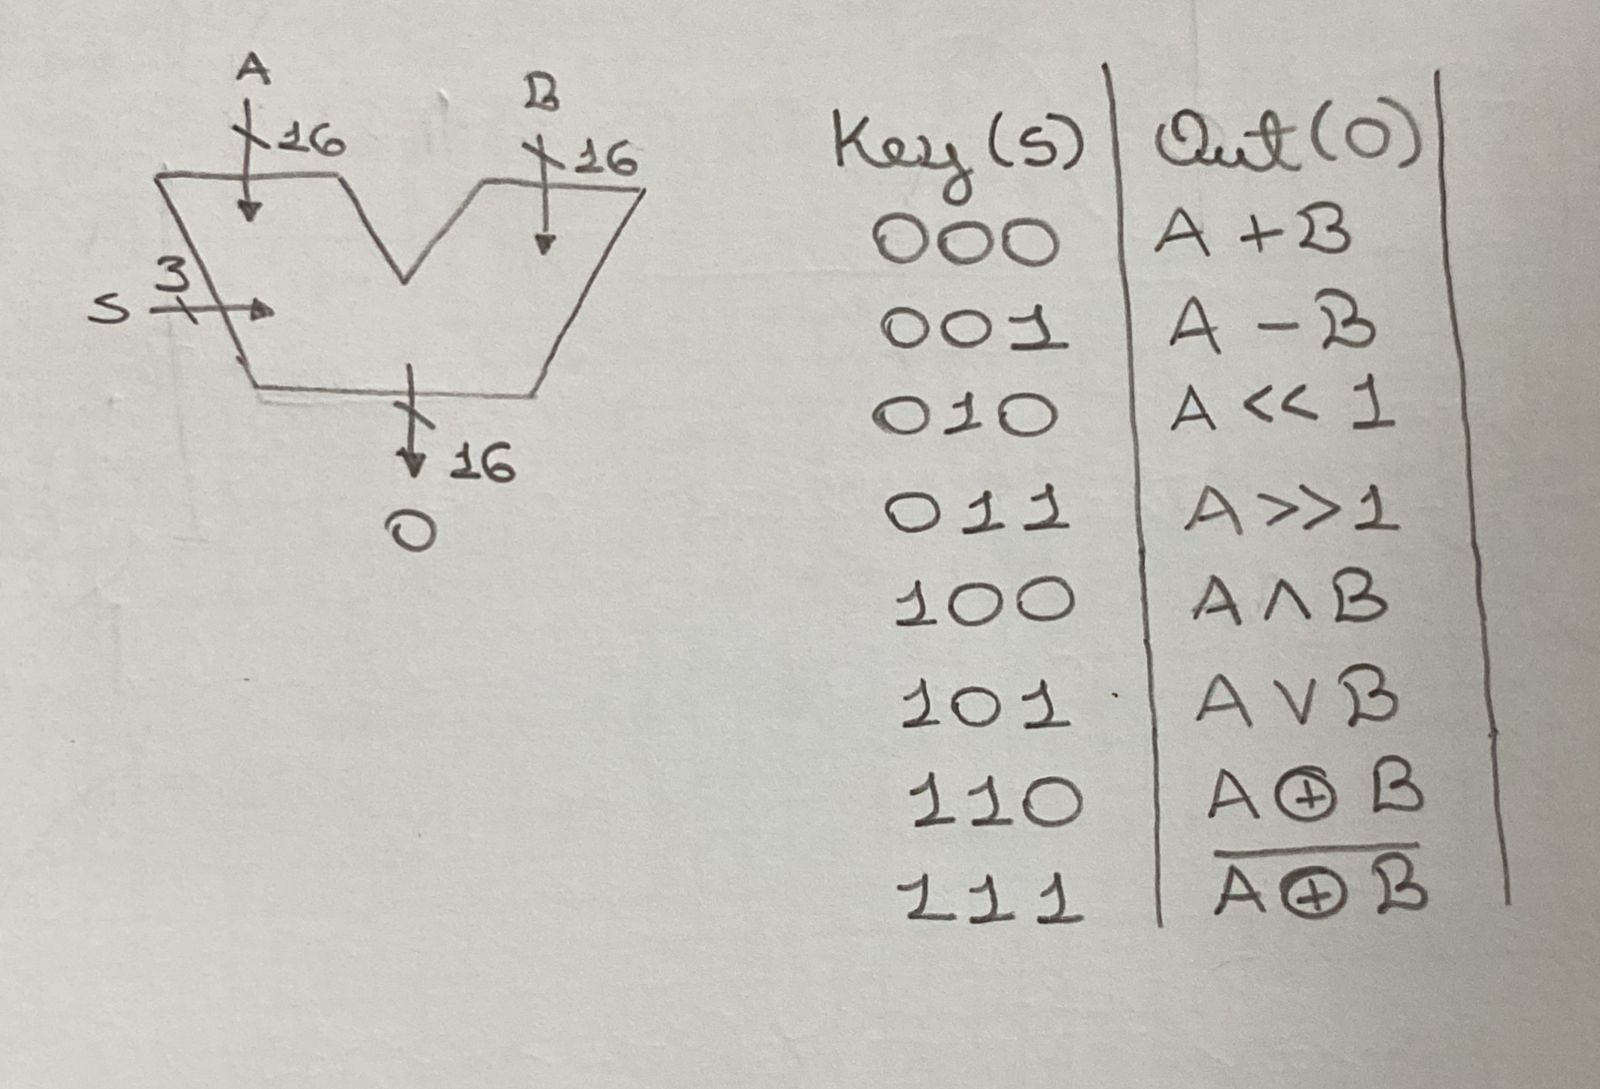 A
B
16
16
3
S
16
O
Key (S) Out (O)
000 A + B
001 A - B
010 A << 1
011 A >> 1
100 A ∧ B
101 A ∨ B
110 A ⊕ B
111 A̅ ̅⊕̅ ̅B̅